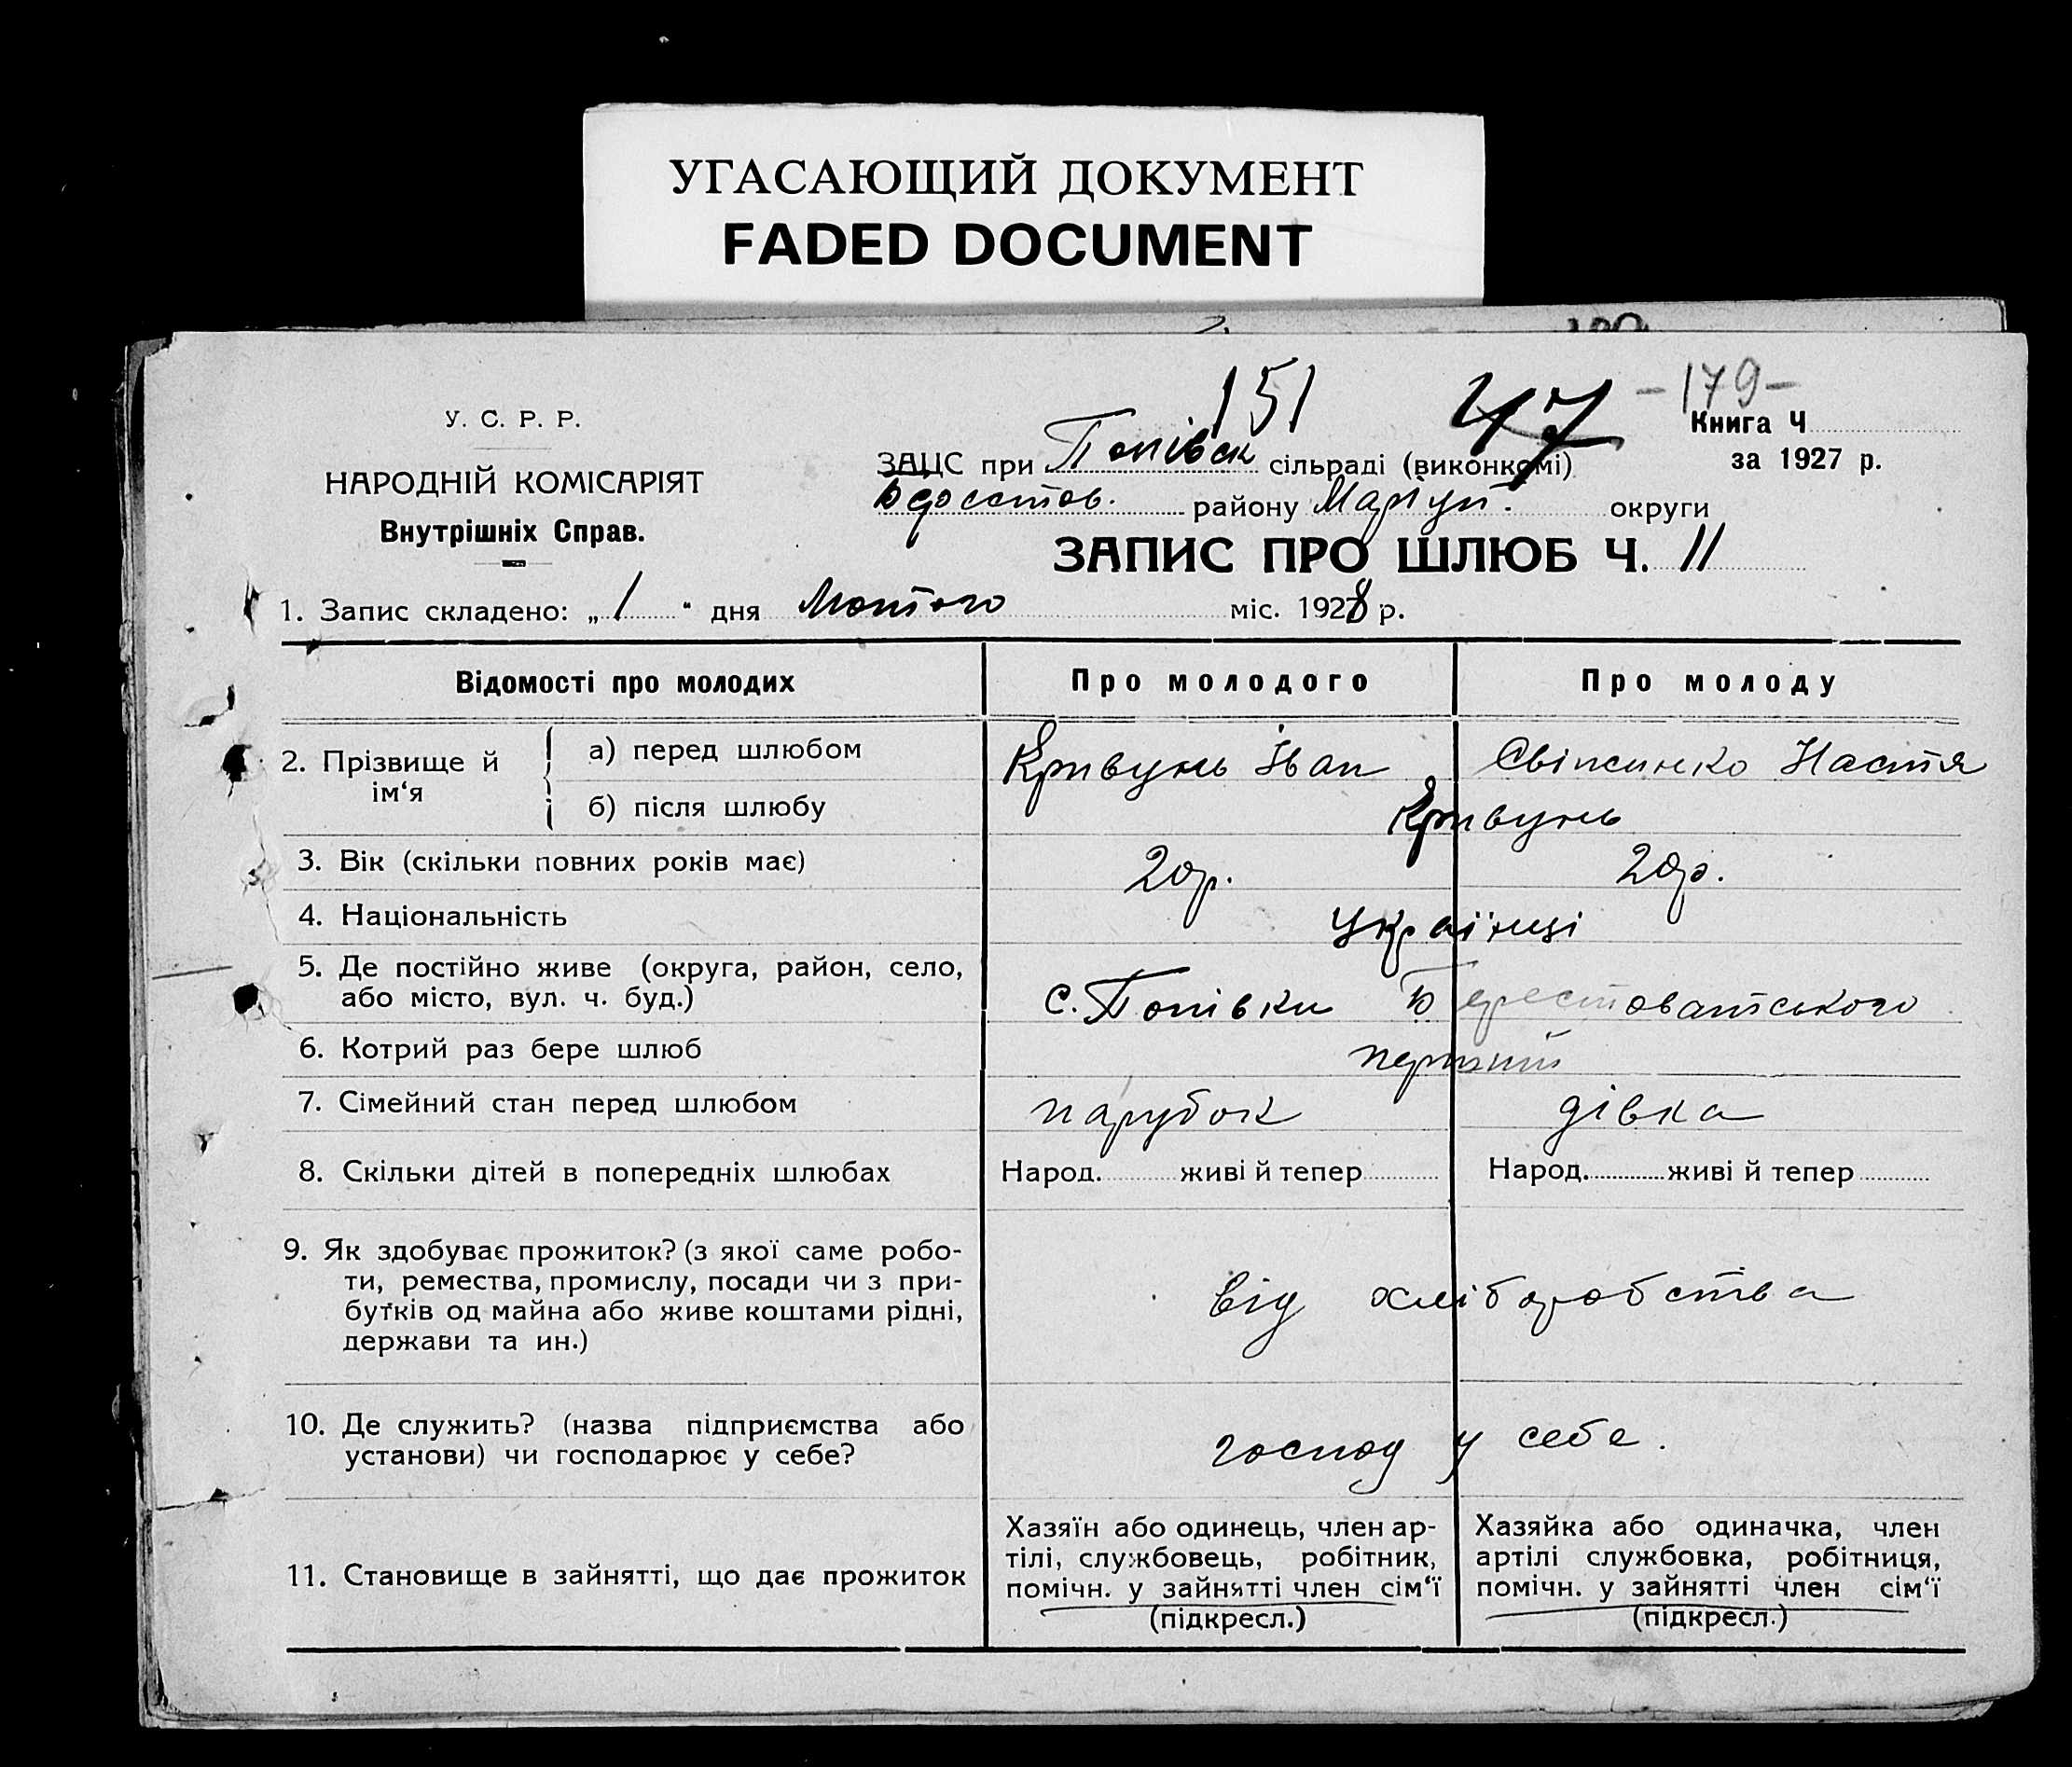 УГАСАЮЩИЙ ДОКУМЕНТ
FADED DOCUMENT
151 47 -179-
У. С. Р. Р.
НАРОДНІЙ КОМІСАРІЯТ
Внутрішніх Справ.
Книга Ч
за 1927 р.
ЗАЦС при Попівськ сільраді (виконкомі)
району Маріуп. округи
ЗАПИС ПРО ШЛЮБ Ч. 11
1. Запис складено: „ 1 “ дня Лютого міс. 1928 р.
Відомості про молодих Про молодого Про молоду
2. Прізвище й ім‘я
а) перед шлюбом Кривунь Іван Настя
б) після шлюбу Кривунь
3. Вік (скільки повних років має) 20р. 20р.
4. Національність Українці
5. Де постійно живе (округа, район, село,
або місто, вул. ч. буд.) с. Попівки Берестоватського
6. Котрий раз бере шлюб перший
7. Сімейний стан перед шлюбом парубок дівка
8. Скільки дітей в попередніх шлюбах Народ. живі й тепер Народ. живі й тепер
9. Як здобуває прожиток? (з якої саме робо-
ти, ремества, промислу, посади чи з при-
бутків од майна або живе коштами рідні,
держави та ин.)
від хліборобства
10. Де служить? (назва підприємства або
установи) чи господарює у себе?
господ у себе.
11. Становище в зайнятті, що дає прожиток
Хазяїн або одинець, член ар-
тілі, службовець, робітник,
помічн. у зайнятті член сім‘ї
(підкресл.)
Хазяйка або одиначка, член
артілі службовка, робітниця,
помічн. у зайнятті член сім‘ї
(підкресл.)